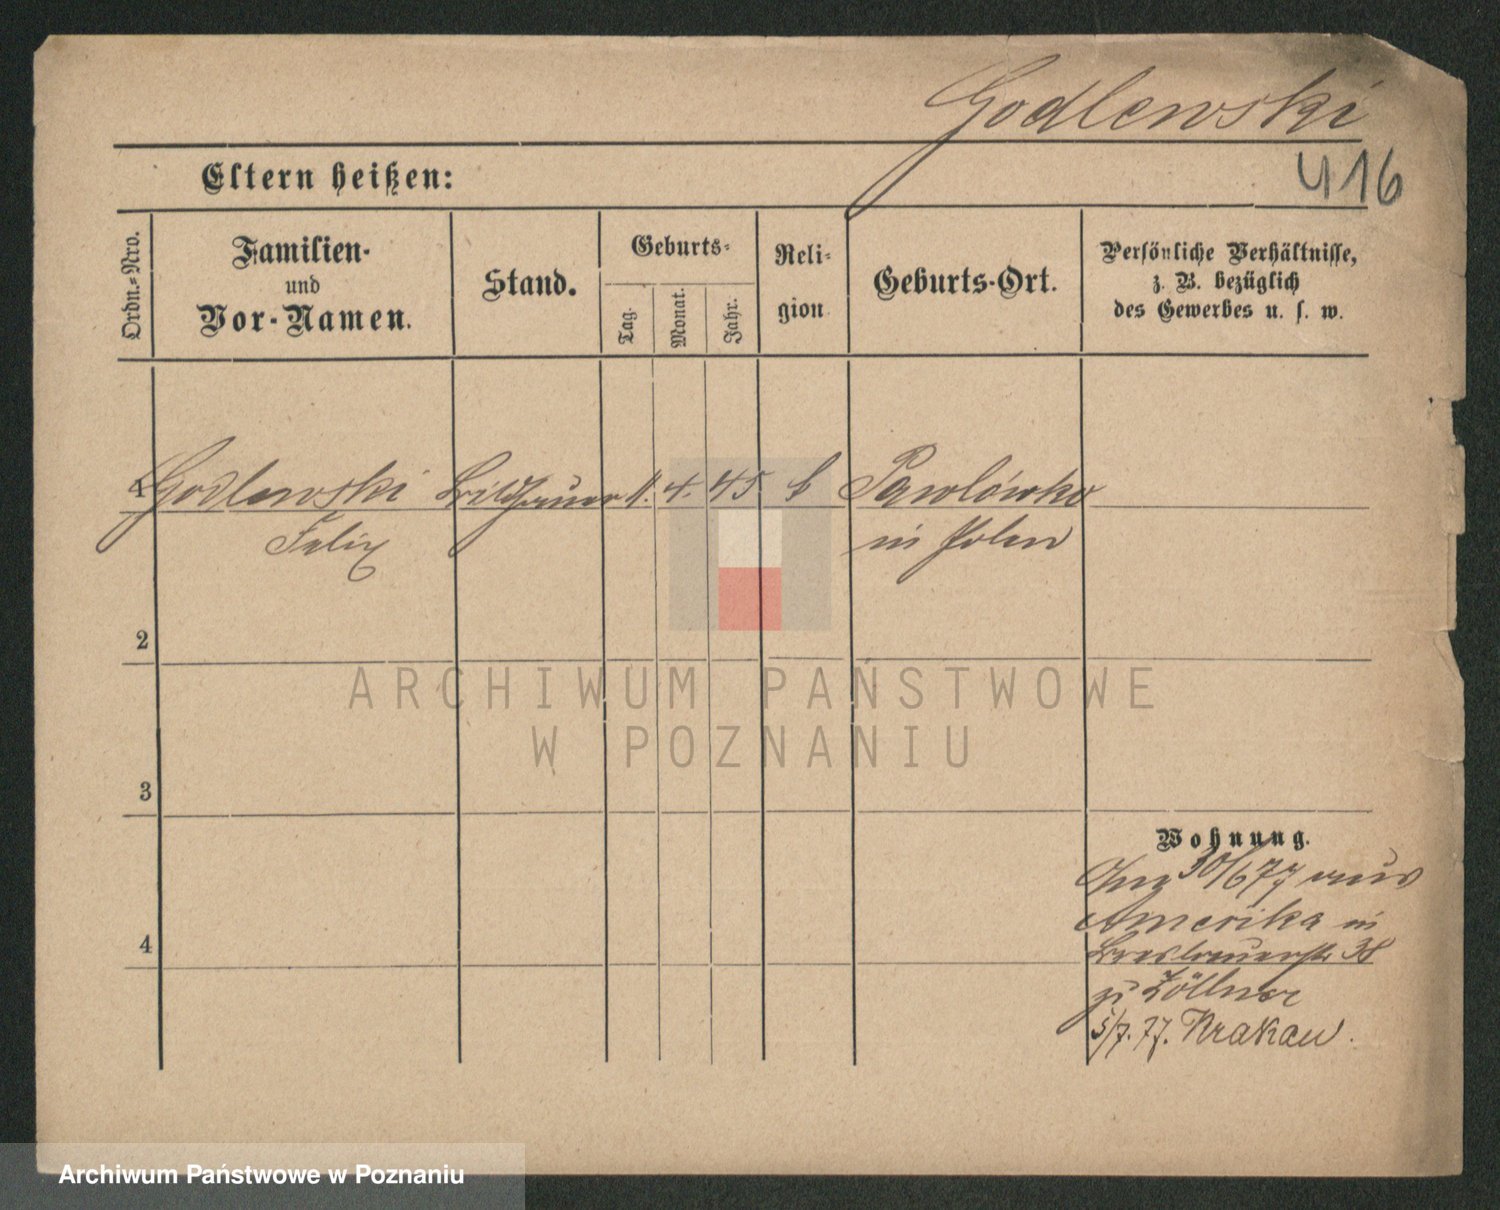 Godlewski
416
Eltern heißen:
Ordn.-Nro.
Familien-
und
Vor-Namen.
Stand.
Geburts-
Tag.
Monat.
Jahr.
Reli-
gion
Geburts-Ort.
Persönliche Verhältnisse,
z. B. bezüglich
des Gewerbes u. s. w.
1 Godlewski Bildhauer 11. 4. 45 k Pawlówko
Felix in Polen
2
3
4
Wohnung.
Zuz 30/6 77 aus
Amerika in
Breslauerstr 38
zu Zöllner
5/7. 77. Krakau.
ARCHIWUM PAŃSTWOWE
W POZNANIU
Archiwum Państwowe w Poznaniu